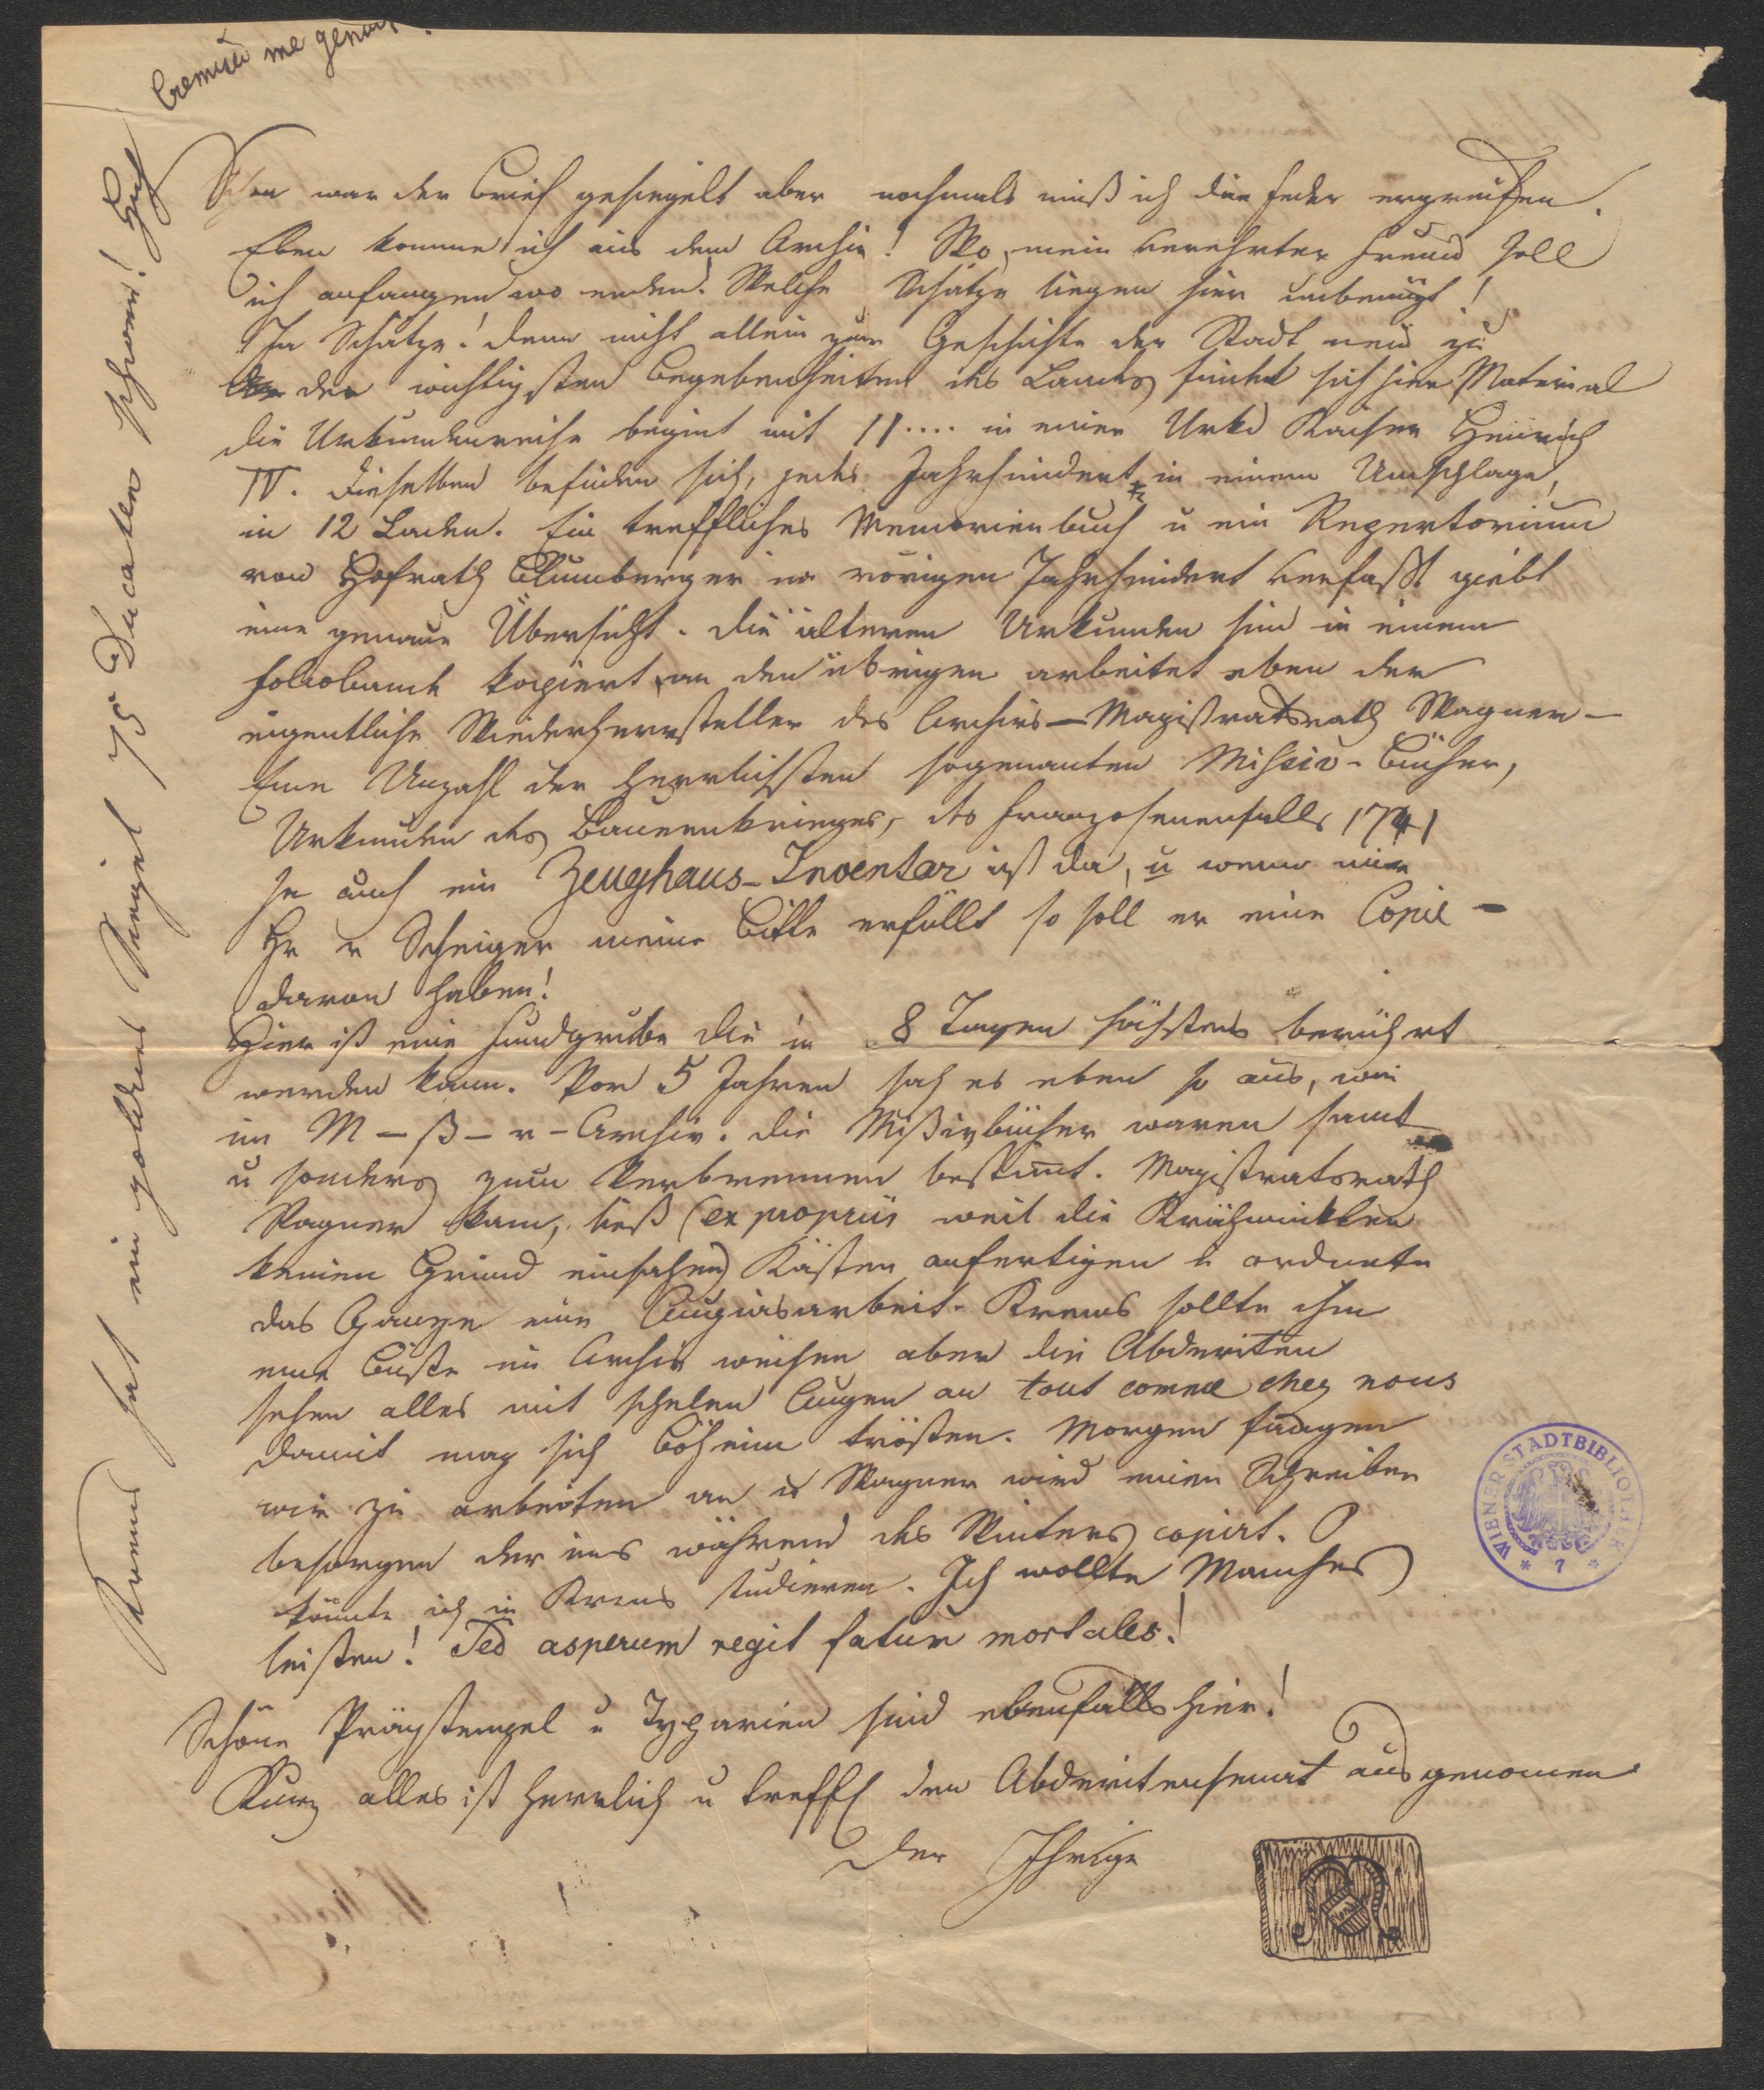 Cremisii me genuit.
Schon war der Brief gesiegelt aber nochmals muß ich die Feder ergreifen.
Eben komme ich aus dem Archiv! Wo, mein verehrter Freund soll
ich anfangen wo enden. Welche Schätze liegen hier unbenützt!
Ja Schätze! denn nicht allein zur Geschichte der Stadt nein zu
den wichtigsten Begebenheiten des Landes findet sich hier Material
die Urkundenreihe beginnt mit 11.... in einer Urkd Kaiser Heinrich
IV. Dieselben befinden sich, jedes Jahrhundert in einem Umschlage,
in 12 Laden. Ein treffliches Memorienbuch u ein Repertorium
von Hofrath Blumberger im vorigen Jahrhundert verfaßt giebt
eine genaue Übersicht. Die älteren Urkunden sind in einem
Foliobande kopiert, an den übrigen arbeitet eben der
eigentliche Wiederhersteller des Archivs – Magistratsrath Wagner –
Eine Unzahl der herrlichsten sogenanten Missiv-Bücher,
Urkunden des Bauernkrieges, des Franzoseneinfalls 1741
ja auch ein Zeughaus-Inventar ist da, u wenn mir
Hr v Scheiger meine Bitte erfüllt so soll er eine Copie –
davon haben!
Hier ist eine Fundgrube die in 8 Tagen höchstens berührt
werden kann. Vor 5 Jahren sah es eben so aus, wie
im M – ß – r – Archiv. Die Mißivbücher waren samt
u sonders zum Verbrennen bestimt. Magistratsrath
Wagner kam, ließ (ex propriis weil die Krähwinkler
keinen Grund einsahen) Kästen anfertigen u ordnete
das Ganze eine Augiasarbeit. Krems sollte ihm
eine Büste im Archiv weihen aber die Abderiten
sehen alles mit schelen Augen an tout comme chez nous
damit mag sich Böheim trösten. Morgen fangen
wir zu arbeiten an u Wagner wird einen Schreiber
besorgen der uns während des Winters copirt. O
könnte ich in Krems studieren. Ich wollte Manches
leisten! Sed asperum regit fatum mortales!
Schöne Prägstempel u Typarien sind ebenfalls hier!
Kurz alles ist herrlich u treffl den Abderitensenat ausgenomen
Der Ihrige
Krems hat ein goldenes Siegel 75 Ducaten schwer!
WIENER STADTBIBLIOTHEK
* 7 *